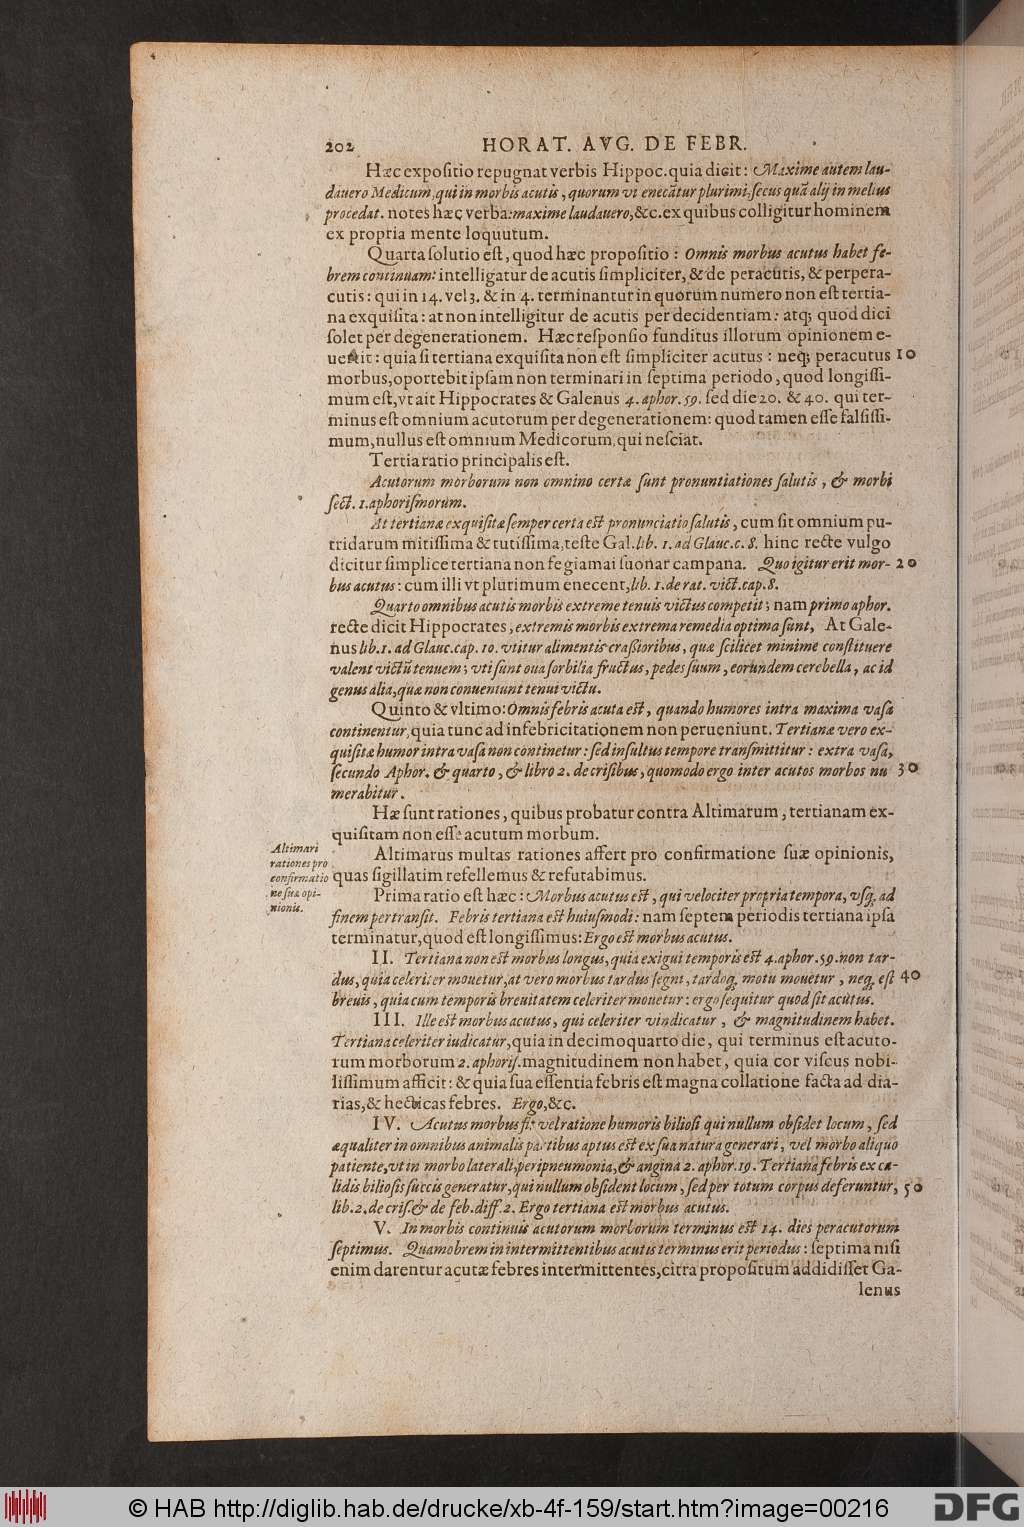 202 HORAT. AVG. DE FEBR.
Hæc expositio repugnat verbis Hippoc. quia dicit: Maxime autem lau-
dauero Medicum, qui in morbis acutis, quorum vi enecãtur plurimi, secus quã alij in melius
procedat. notes hæc verba: maxime laudauero, &c. ex quibus colligitur hominem
ex propria mente loquutum.
Quarta solutio est, quod hæc propositio: Omnis morbus acutus habet fe-
brem continuam: intelligatur de acutis simpliciter, & de peracutis, & perpera-
cutis: qui in 14. vel 3. & in 4. terminantur in quorum numero non est tertia-
na exquisita: at non intelligitur de acutis per decidentiam: atq; quod dici
solet per degenerationem. Hæc responsio funditus illorum opinionem e-
uertit: quia si tertiana exquisita non est simpliciter acutus: neq; peracutus 10
morbus, oportebit ipsam non terminari in septima periodo, quod longissi-
mum est, vt ait Hippocrates & Galenus 4. aphor. 59. sed die 20. & 40. qui ter-
minus est omnium acutorum per degenerationem: quod tamen esse falsissi-
mum, nullus est omnium Medicorum, qui nesciat.
Tertia ratio principalis est.
Acutorum morborum non omnino certæ sunt pronuntiationes salutis, & morbi
sect. 1. aphorismorum.
At tertianæ exquisitæ semper certa est pronunciatio salutis, cum sit omnium pu-
tridarum mitissima & tutissima, teste Gal. lib. 1. ad Glauc. c. 8. hinc recte vulgo
dicitur simplice tertiana non fe giamai suonar campana. Quo igitur erit mor- 20
bus acutus: cum illi vt plurimum enecent, lib. 1. de rat. vict. cap. 8.
Quarto omnibus acutis morbis extreme tenuis victus competit; nam primo aphor.
recte dicit Hippocrates, extremis morbis extrema remedia optima sunt, At Gale-
nus lib. 1. ad Glauc. cap. 10. vtitur alimentis crassioribus, quæ scilicet minime constituere
valent victũ tenuem; vti sunt oua sorbilia fructus, pedes suum, eorundem cerebella, ac id
genus alia, quæ non conueniunt tenui victu.
Quinto & vltimo: Omnis febris acuta est, quando humores intra maxima vasa
continentur, quia tunc ad infebricitationem non perueniunt. Tertianæ vero ex-
quisitæ humor intra vasa non continetur: sed insultus tempore transmittitur: extra vasa,
secundo Aphor. & quarto, & libro 2. de crisibus, quomodo ergo inter acutos morbos nu 30
merabitur.
Hæ sunt rationes, quibus probatur contra Altimarum, tertianam ex-
quisitam non esse acutum morbum.
Altimari
rationes pro
confirmatio
ne suæ opi-
nionis.
Altimarus multas rationes affert pro confirmatione suæ opinionis,
quas sigillatim refellemus & refutabimus.
Prima ratio est hæc: Morbus acutus est, qui velociter propria tempora, vsq; ad
finem pertransit. Febris tertiana est huiusmodi: nam septem periodis tertiana ipsa
terminatur, quod est longissimus: Ergo est morbus acutus.
II. Tertiana non est morbus longus, quia exigui temporis est 4. aphor. 59. non tar-
dus, quia celeriter mouetur, at vero morbus tardus segni, tardoq; motu mouetur, neq; est 40
breuis, quia cum temporis breuitatem celeriter mouetur: ergo sequitur quod sit acutus.
III. Ille est morbus acutus, qui celeriter vindicatur, & magnitudinem habet.
Tertiana celeriter iudicatur, quia in decimoquarto die, qui terminus est acuto-
rum morborum 2. aphoris. magnitudinem non habet, quia cor viscus nobi-
lissimum afficit: & quia sua essentia febris est magna collatione facta ad dia-
rias, & hecticas febres. Ergo, &c.
IV. Acutus morbus fit vel ratione humoris biliosi qui nullum obsidet locum, sed
æqualiter in omnibus animalis partibus aptus est ex sua natura generari, vel morbo aliquo
patiente, vt in morbo laterali, peripneumonia, & angina 2. aphor. 19. Tertiana febris ex ca-
lidis biliosis succis generatur, qui nullum obsident locum, sed per totum corpus deferuntur, 50
lib. 2. de cris. & de feb. diff. 2. Ergo tertiana est morbus acutus.
V. In morbis continuis acutorum morborum terminus est 14. dies peracutorum
septimus. Quamobrem in intermittentibus acutis terminus erit periodus: septima nisi
enim darentur acutæ febres intermittentes, citra propositum addidisset Ga-
lenus
© HAB http://diglib.hab.de/drucke/xb-4f-159/start.htm?image=00216
DFG